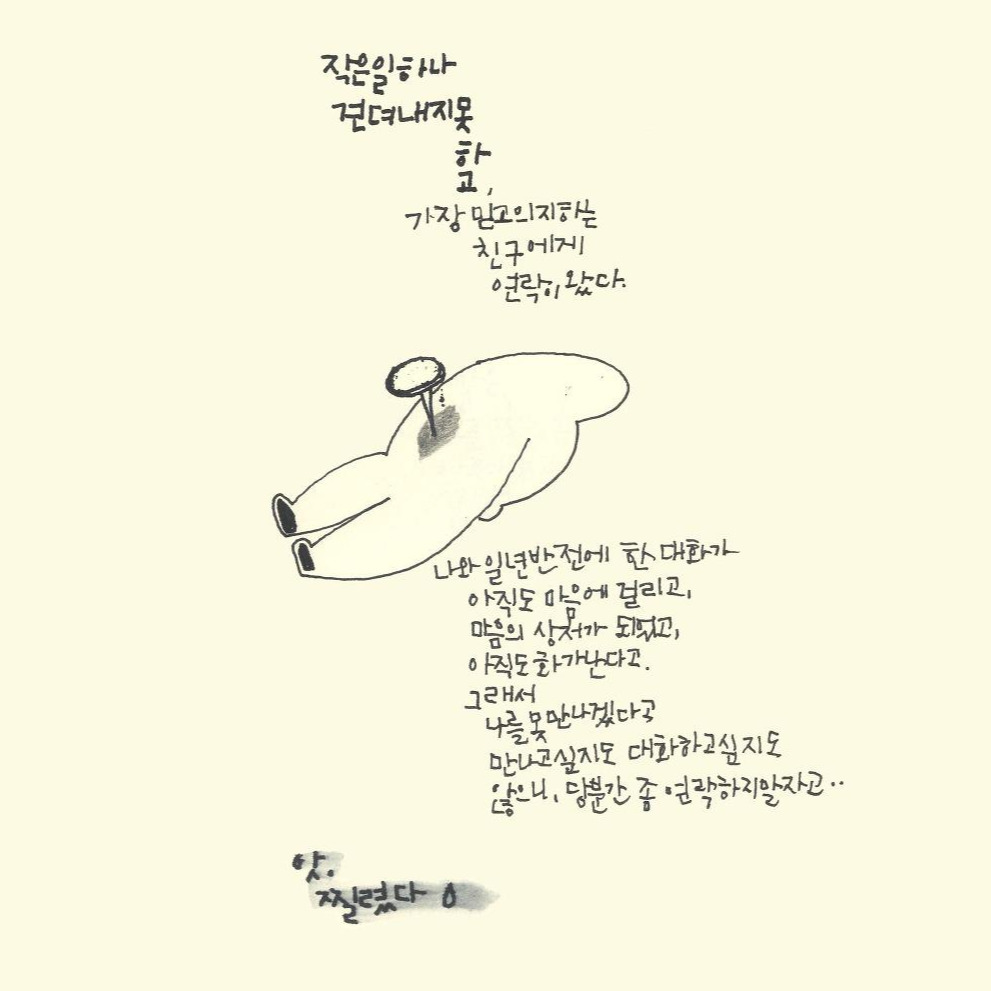 작은일하나
견뎌내지못
하
고,
가장 믿고의지하는
친구에게
연락이 왔다.
나와 일년반전에 한 대화가
아직도 마음에 걸리고,
마음의 상처가 되었고,
아직도화가난다고.
그래서
나를못만나겠다고
만나고싶지도 대화하고싶지도
않으니, 당분간 좀 연락하지말자고..
앗.
찔렸다